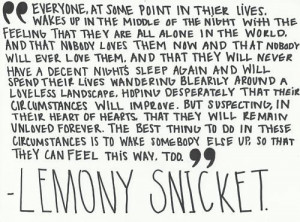 "EVERYONE, AT SOME POINT IN THIER LIVES,
WAKES UP IN THE MIDDLE OF THE NIGHT WITH THE
FEELING THAT THEY ARE ALL ALONE IN THE WORLD,
AND THAT NOBODY LOVES THEM NOW AND THAT NOBODY
WILL EVER LOVE THEM, AND THAT THEY WILL NEVER
HAVE A DECENT NIGHTS SLEEP AGAIN AND WILL
SPEND THEIR LIVES WANDERING BLEARILY AROUND A
LOVELESS LANDSCAPE, HOPING DESPERATELY THAT THEIR
CIRCUMSTANCES WILL IMPROVE, BUT SUSPECTING, IN
THEIR HEART OF HEARTS, THAT THEY WILL REMAIN
UNLOVED FOREVER. THE BEST THING TO DO IN THESE
CIRCUMSTANCES IS TO WAKE SOMEBODY ELSE UP, SO THAT
THEY CAN FEEL THIS WAY, TOO."
-LEMONY SNICKET.